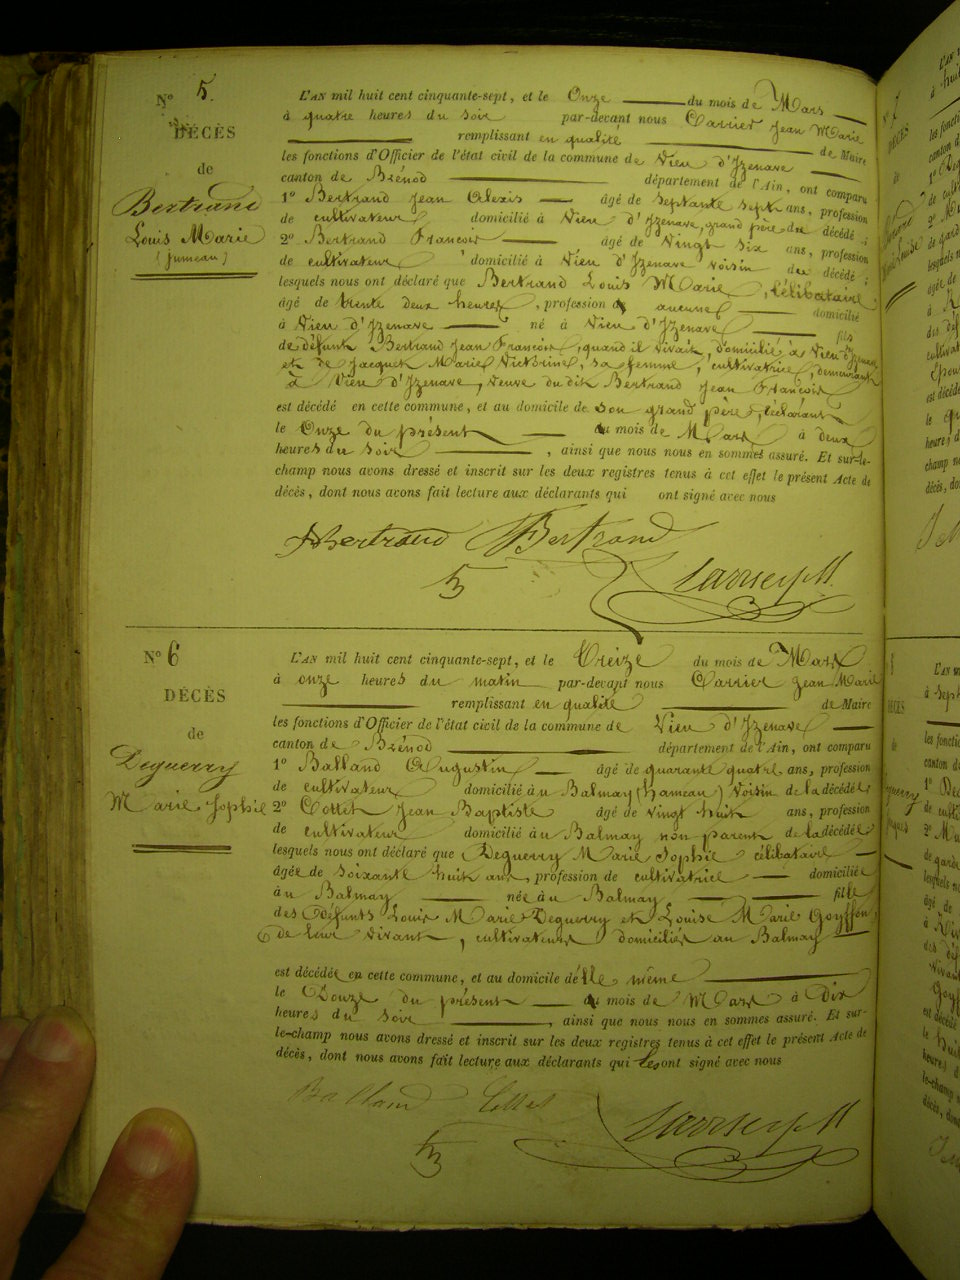 N° 5.
DÉCÈS
de
Bertrand
Louis Marie
(Jumeau)
L'AN mil huit cent cinquante-sept, et le Onze du mois de Mars
à quatre heures du soir par-devant nous Carrier Jean Marie
remplissant en qualité de Maire
les fonctions d'Officier de l'état civil de la commune de Vieu d'Izenave
canton de Brénod département de l'Ain, ont comparu
1° Bertrand Jean Alexis âgé de septante sept ans, profession
de cultivateur domicilié à Vieu d'Izenave, grand père du décédé ;
2° Bertrand François âgé de vingt six ans, profession
de cultivateur domicilié à Vieu d'Izenave voisin du décédé ;
lesquels nous ont déclaré que Bertrand Louis Marie, célibataire
âgé de trente deux heures, profession d aucune domicilié
à Vieu d'Izenave né à Vieu d'Izenave fils
de défunt Bertrand Jean François, quand il vivait, domicilié à Vieu d'Izenave
et de Jacquet Marie Victorine, sa femme, cultivatrice, demeurant
à Vieu d'Izenave, veuve du dit Bertrand Jean François
est décédé en cette commune, et au domicile de son grand père, déclarant
le Onze du présent du mois de Mars à deux
heures du soir, ainsi que nous nous en sommes assuré. Et sur-le-
champ nous avons dressé et inscrit sur les deux registres tenus à cet effet le présent Acte de
décès, dont nous avons fait lecture aux déclarants qui ont signé avec nous
Bertrand Bertrand
Carrier JM
N° 6
DÉCÈS
de
Deguerry
Marie Sophie
L'AN mil huit cent cinquante-sept, et le Treize du mois de Mars
à onze heures du matin par-devant nous Carrier Jean Marie
remplissant en qualité de Maire
les fonctions d'Officier de l'état civil de la commune de Vieu d'Izenave
canton de Brénod département de l'Ain, ont comparu
1° Balland Augustin âgé de quarante quatre ans, profession
de cultivateur domicilié au Balmay (hameau) voisin de la décédée
2° Cottet Jean Baptiste âgé de vingt huit ans, profession
de cultivateur domicilié au Balmay non parent de la décédée
lesquels nous ont déclaré que Deguerry Marie Sophie célibataire
âgée de soixante huit ans, profession de cultivatrice domiciliée
au Balmay née au Balmay fille
des défunts Louis Marie Deguerry et Louise Marie Goyffon,
de leur vivant, cultivateurs domiciliés au Balmay
est décédée en cette commune, et au domicile d'elle même
le Douze du présent du mois de Mars à Dix
heures du soir, ainsi que nous nous en sommes assuré. Et sur-
le-champ nous avons dressé et inscrit sur les deux registres tenus à cet effet le présent Acte de
décès, dont nous avons fait lecture aux déclarants qui les ont signé avec nous
Balland Cottet
Carrier JM